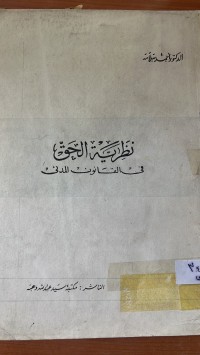 الدكتور أحمد سلامة
نظرية الحق
في القانون المدني
الناشر: مكتبة السيد عبد الله وهبة